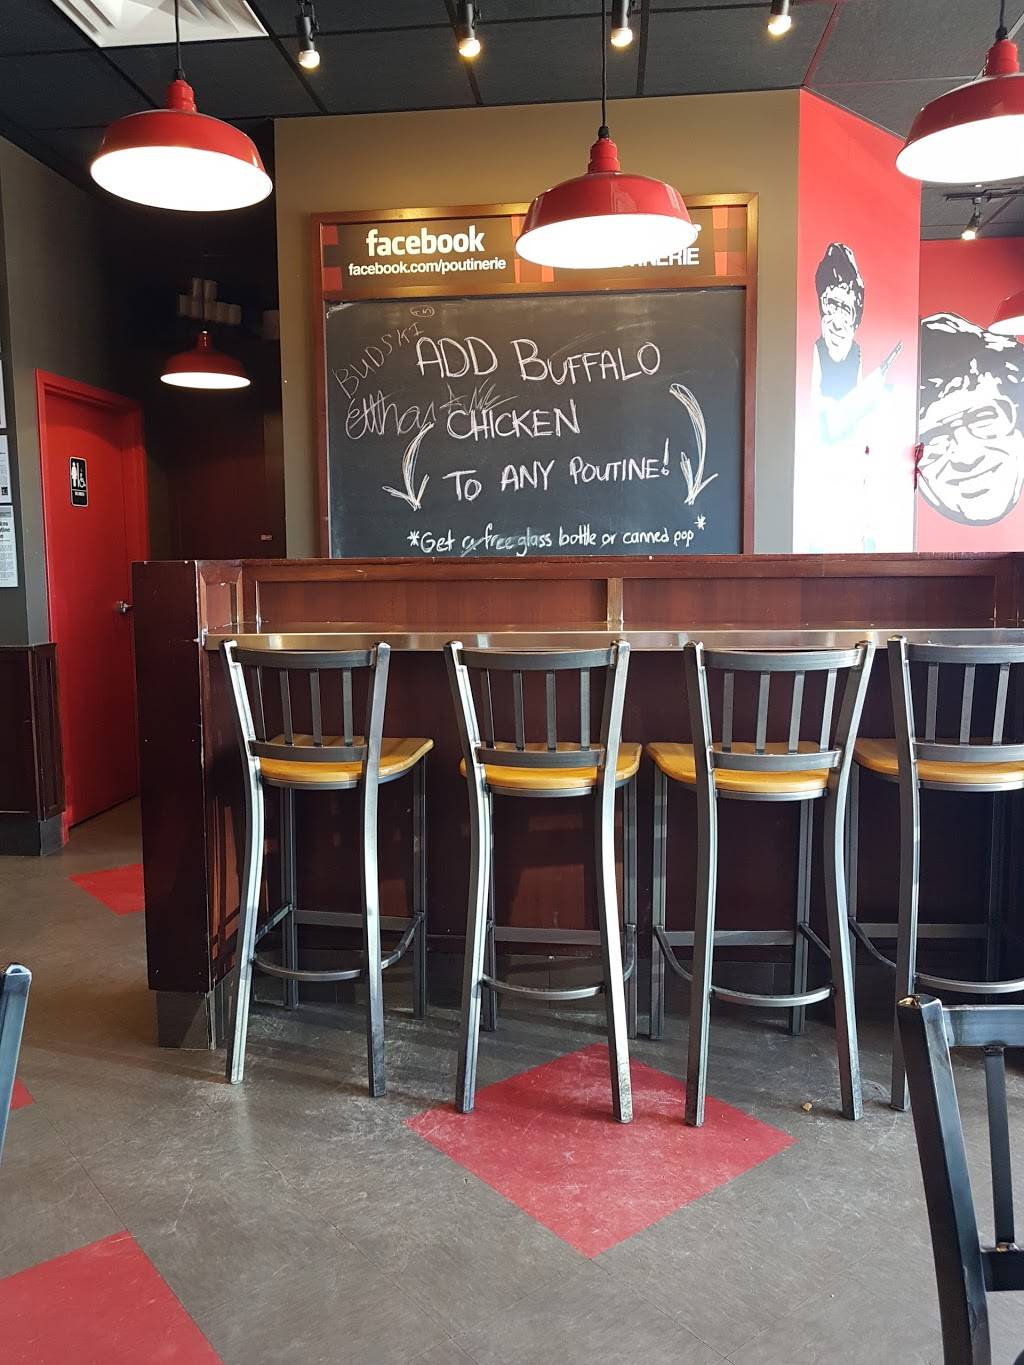 facebook
facebook.com/poutinerie
BUDSKI
ADD BUFFALO
CHICKEN
TO ANY POUTINE!
*Get a free glass bottle or canned pop*